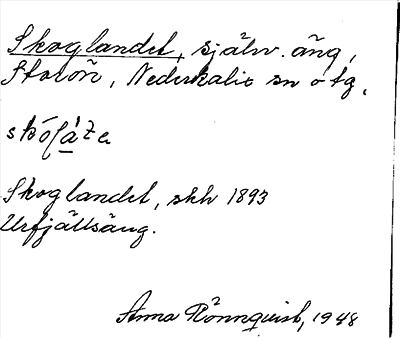 Skoglandet, själv. äng,
Storön, Nederkalix sn o tg.
Skoglandet, skh 1893
Urfjällsäng.
Anna Rönnquist, 1948